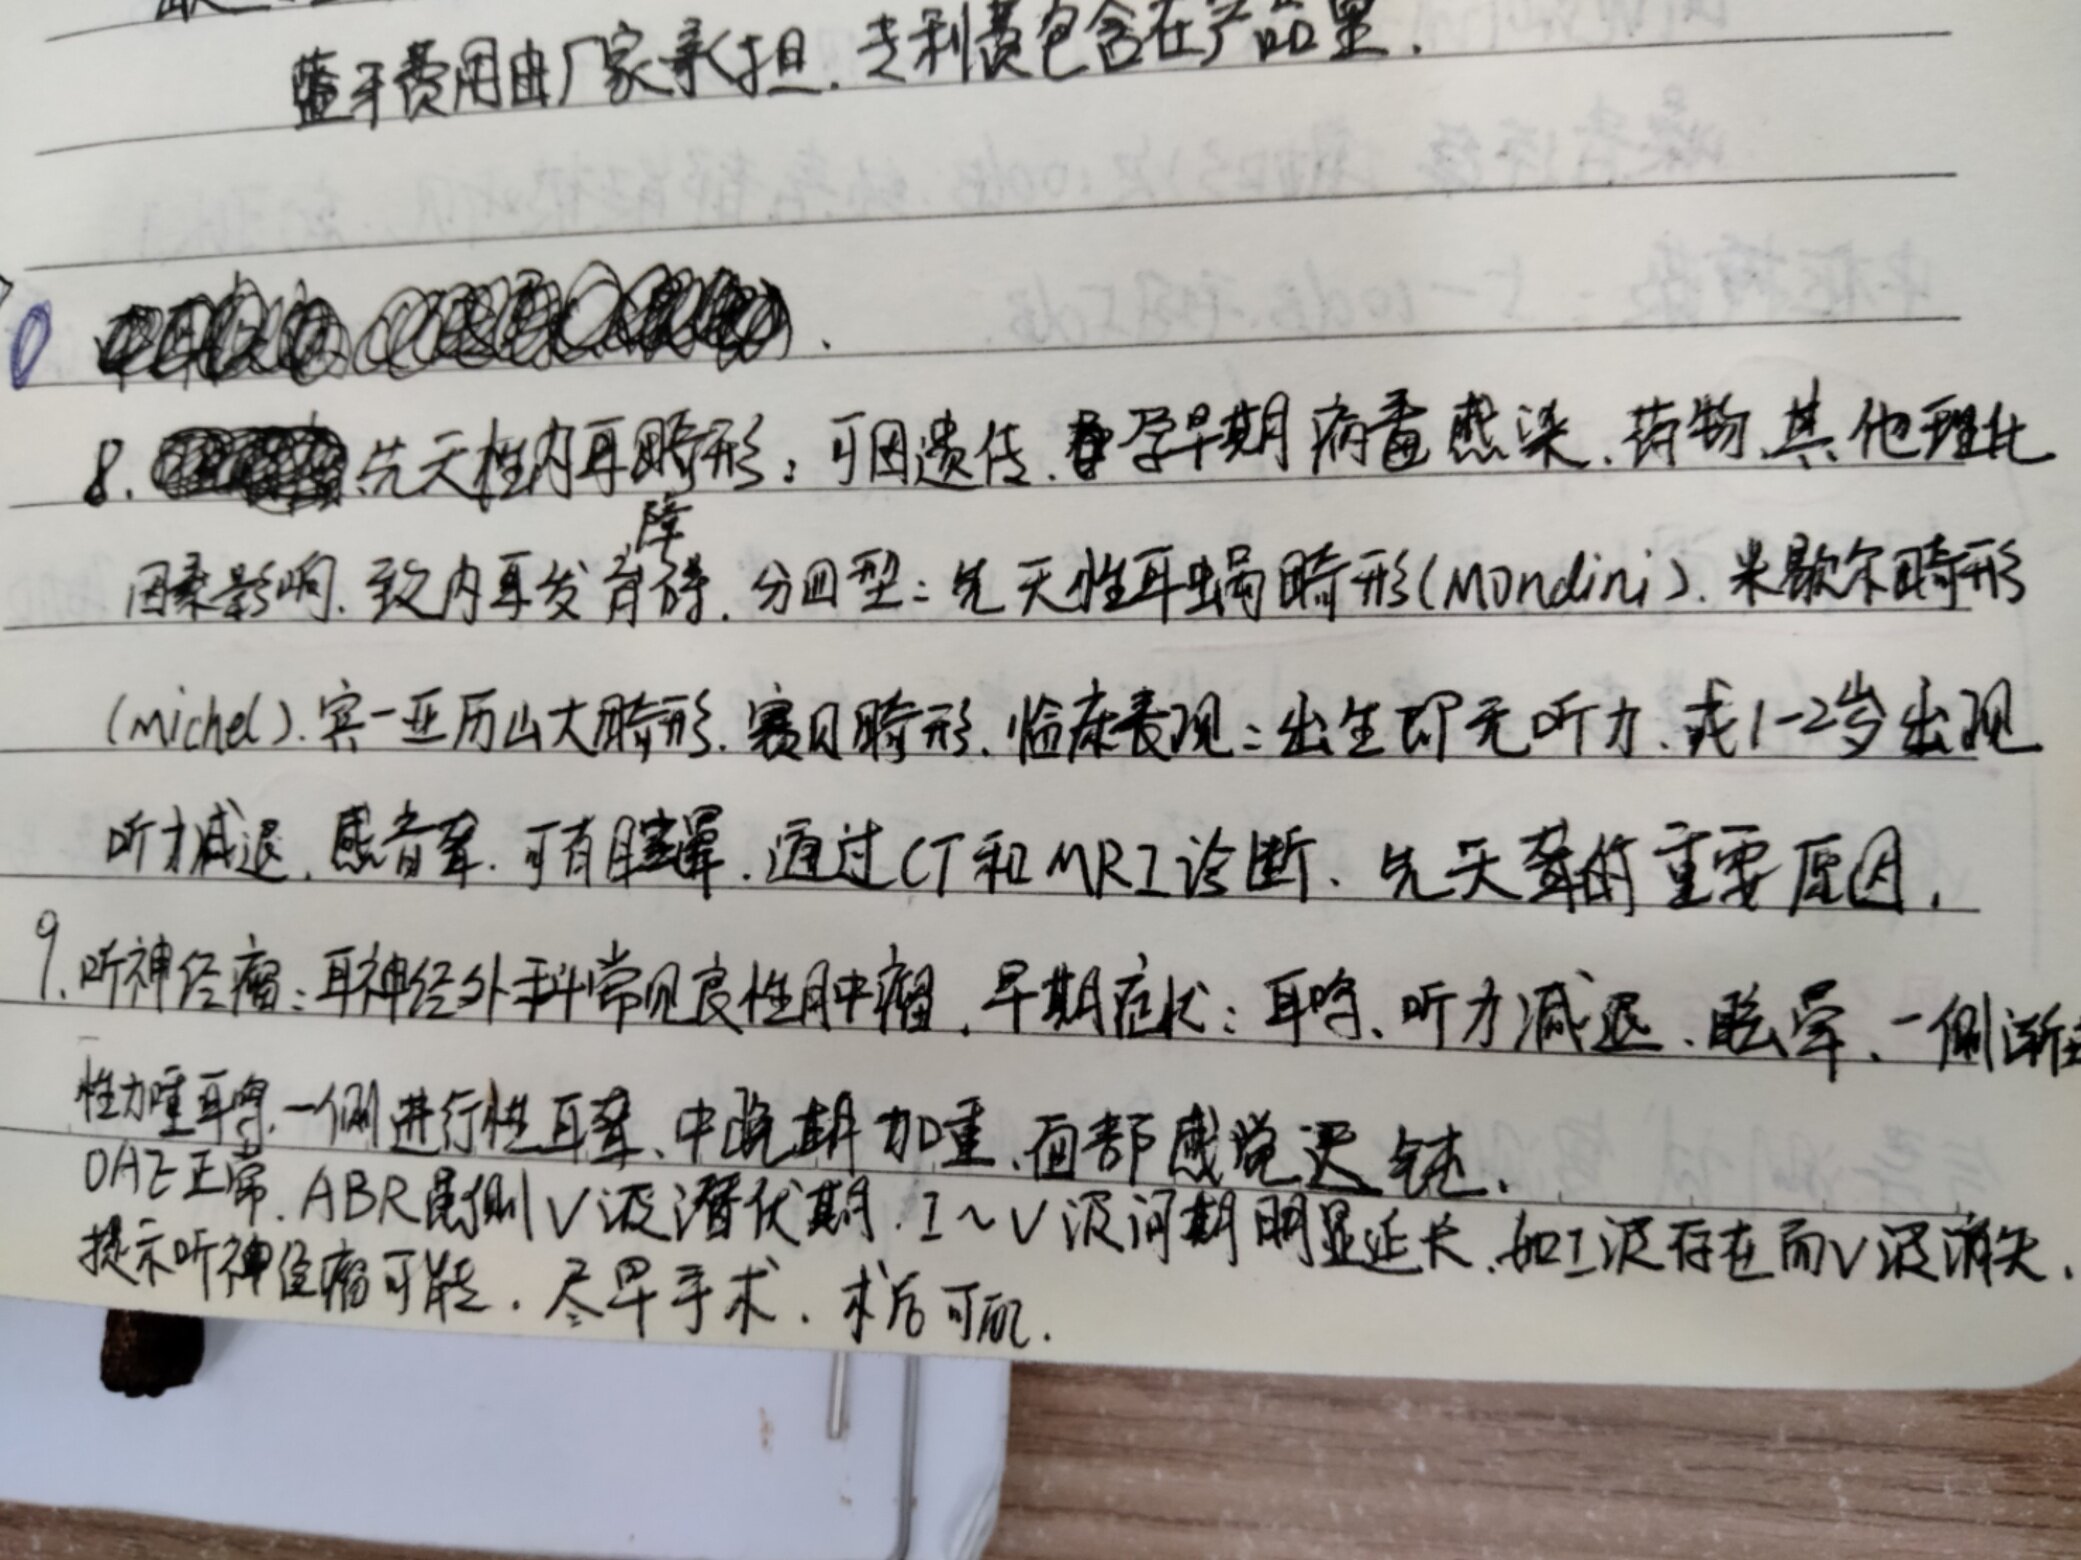 蓝牙费用由厂家承担.专利费包含在产品里.
8. 先天性内耳畸形:可因遗传.孕早期病毒感染.药物.其他理化
因素影响.致内耳发育障碍.分四型:先天性耳蜗畸形(Mondini).米歇尔畸形
(Michel).宾-亚历山大畸形.赛贝畸形.临床表现:出生即无听力.或1-2岁出现
听力减退.感音聋.可有眩晕.通过CT和MRI诊断.先天聋的重要原因.
9.听神经瘤:耳神经外科常见良性肿瘤.早期症状:耳鸣、听力减退、眩晕、一侧渐进
性加重耳鸣.一侧进行性耳聋、中晚期加重、面部感觉迟钝.
OAE正常.ABR患侧V波潜伏期.I~V波间期明显延长.如I波存在而V波消失.
提示听神经瘤可能.尽早手术.术后可配.